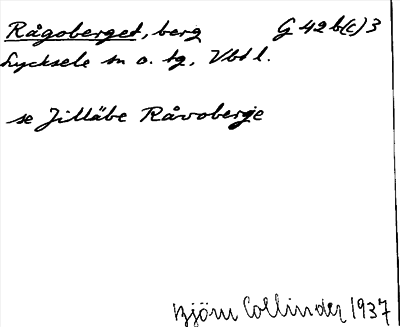 Rågoberget, berg G 42 b(c) 3
Lycksele sn o. tg, Vbtl.
se Jilläbe Råvoberge
Björn Collinder 1937